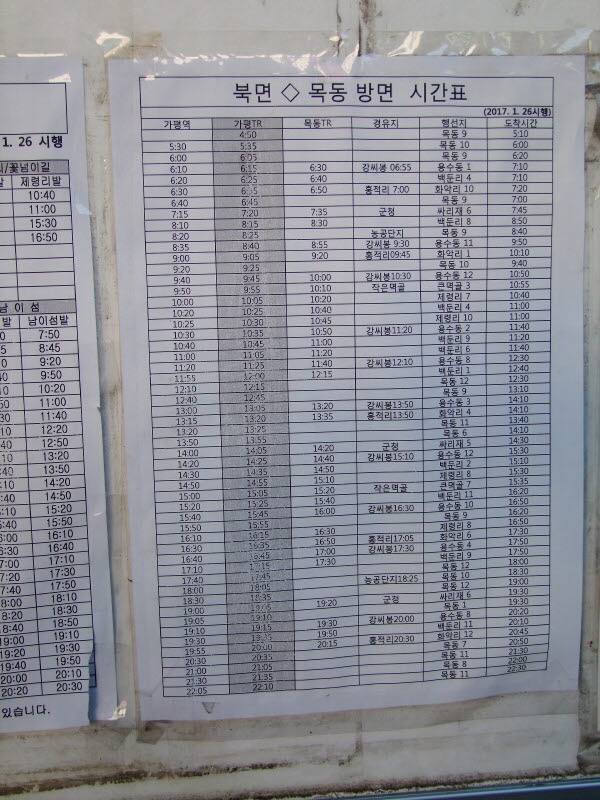 1. 26 시행
꽃넘이길
제령리발
10:40
11:00
15:30
16:50
남 이 섬
발 남이섬발
7:50
8:45
9:20
9:50
10:20
11:00
11:40
12:20
12:50
13:20
13:50
14:20
14:50
15:20
15:50
16:10
16:40
17:10
17:30
17:50
18:10
18:30
18:50
19:10
19:30
19:50
20:00 20:10
20:20 20:30
있습니다.
북면 ◇ 목동 방면 시간표
(2017. 1. 26시행)
가평역 가평TR 목동TR 경유지 행선지 도착시간
4:50 목동 9 5:10
5:30 5:35 목동 10 6:00
6:00 6:05 목동 9 6:20
6:10 6:15 6:30 강씨봉 06:55 용수동 1 7:10
6:20 6:25 6:40 백둔리 4 7:10
6:30 6:35 6:50 홍적리 7:00 화악리 10 7:20
6:40 6:45 목동 9 7:00
7:15 7:20 7:35 군청 싸리재 6 7:45
8:10 8:15 8:30 백둔리 8 8:50
8:20 8:25 농공단지 목동 9 8:40
8:35 8:40 8:55 강씨봉 9:30 용수동 11 9:50
9:00 9:05 9:20 홍적리09:45 화악리 1 10:10
9:20 9:25 목동 10 9:40
9:40 9:45 10:00 강씨봉10:30 용수동 12 10:50
9:50 9:55 10:10 작은멱골 큰멱골 3 10:55
10:00 10:05 10:20 제령리 7 10:40
10:20 10:25 10:40 백둔리 4 11:00
10:25 10:30 10:45 제령리 10 11:00
10:30 10:35 10:50 강씨봉11:20 용수동 2 11:40
10:40 10:45 11:00 백둔리 9 11:20
11:00 11:05 11:20 백둔리 6 11:40
11:20 11:25 11:40 강씨봉12:10 용수동 8 12:30
11:55 12:00 12:15 백둔리 1 12:40
12:10 12:15 목동 12 12:30
12:40 12:45 목동 9 13:10
13:00 13:05 13:20 강씨봉13:50 용수동 3 14:10
13:15 13:20 13:35 홍적리13:50 화악리 4 14:10
13:20 13:25 목동 11 13:40
13:50 13:55 목동 6 14:10
14:00 14:05 14:20 군청 싸리재 5 14:30
14:20 14:25 14:40 강씨봉15:10 용수동 12 15:30
14:30 14:35 14:50 백둔리 2 15:10
14:50 14:55 15:10 제령리 8 15:30
15:00 15:05 15:20 작은멱골 큰멱골 7 15:35
15:20 15:25 15:40 백둔리 11 16:20
15:40 15:45 16:00 강씨봉16:30 용수동 10 16:50
15:50 15:55 목동 9 16:20
16:10 16:15 16:30 제령리 8 16:50
16:30 16:35 16:50 홍적리17:05 화악리 6 17:30
16:40 16:45 17:00 강씨봉17:30 용수동 4 17:50
17:10 17:15 17:30 백둔리 9 17:50
17:40 17:45 목동 12 18:00
18:00 18:05 농공단지18:25 목동 10 18:30
18:30 18:35 목동 12 19:00
19:00 19:05 19:20 군청 싸리재 6 19:30
19:05 19:10 목동 1 19:30
19:10 19:15 19:30 강씨봉20:00 용수동 8 20:20
19:30 19:35 19:50 백둔리 11 20:10
19:55 20:00 20:15 홍적리20:30 화악리 12 20:45
20:30 20:35 목동 7 20:50
21:00 21:05 목동 11 21:30
21:30 21:35 목동 8 22:00
22:05 22:10 목동 11 22:30